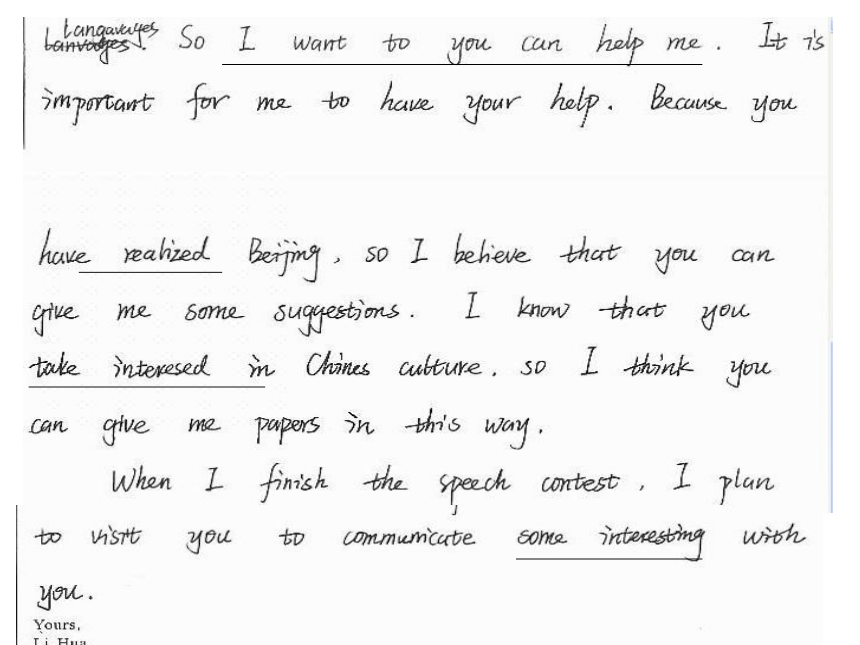 So I want to you can help me. It is
important for me to have your help. Because you
have realized Beijing, so I believe that you can
give me some suggestions. I know that you
take interesed in Chines culture, so I think you
can give me papers in this way.
When I finish the speech contest, I plan
to visit you to communicate some interesting with
you.
Yours,
Li Hua